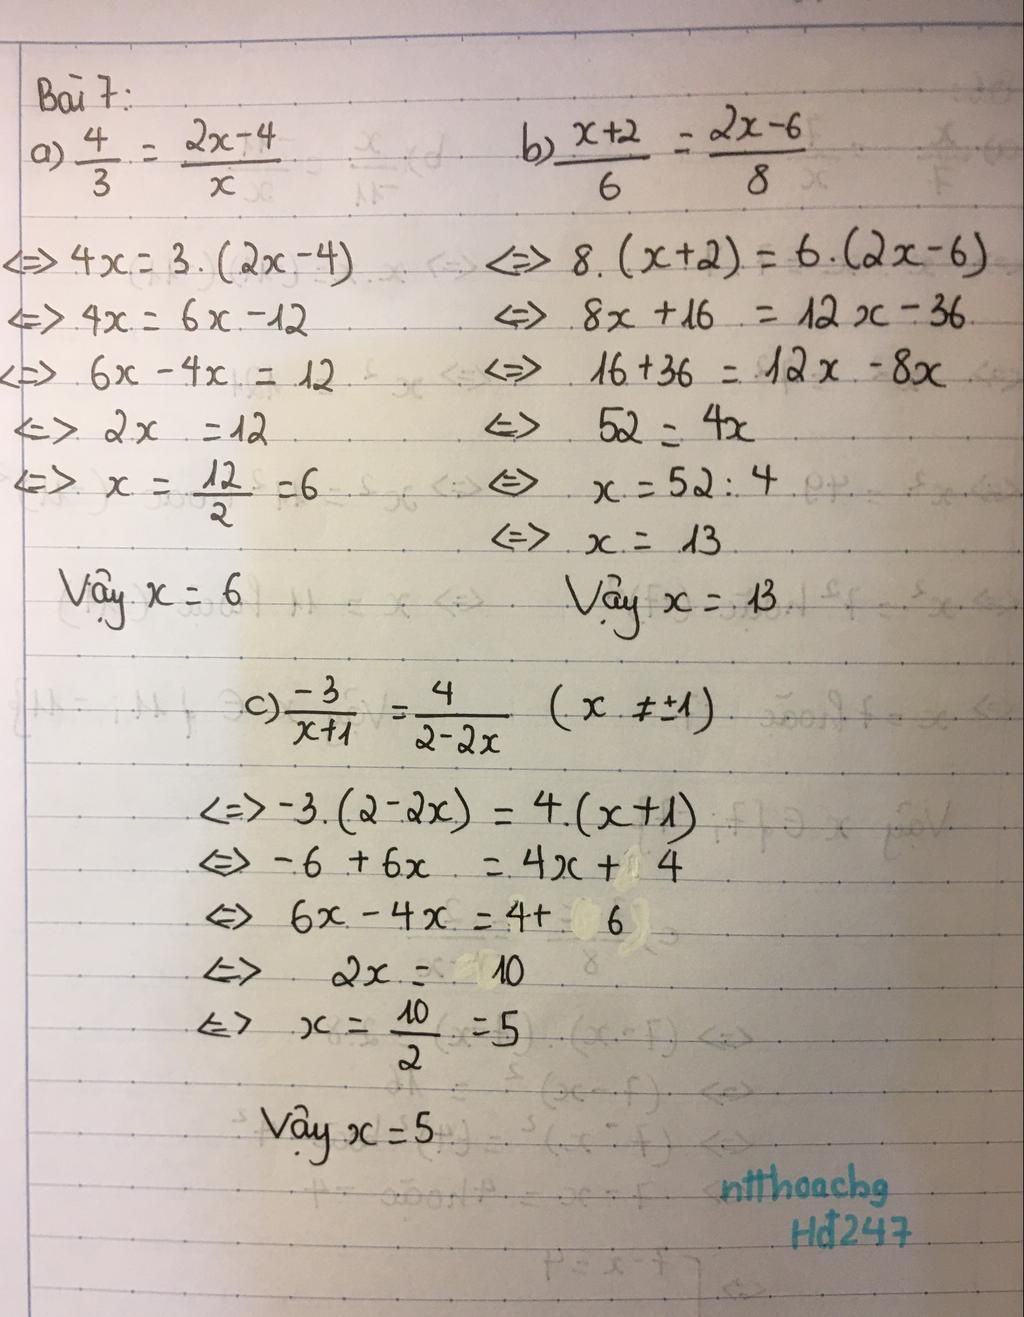 Bài 7:
a) 4/3 = (2x-4)/x
<=> 4x = 3.(2x-4)
<=> 4x = 6x -12
<=> 6x - 4x = 12
<=> 2x = 12
<=> x = 12/2 = 6
Vậy x = 6
b) (x+2)/6 = (2x-6)/8
<=> 8.(x+2) = 6.(2x-6)
<=> 8x +16 = 12x - 36
<=> 16+36 = 12x - 8x
<=> 52 = 4x
<=> x = 52 : 4
<=> x = 13
Vậy x = 13
c) -3/(x+1) = 4/(2-2x) (x ≠ ±1)
<=> -3.(2-2x) = 4.(x+1)
<=> -6 + 6x = 4x + 4
<=> 6x - 4x = 4+ 6
<=> 2x = 10
<=> x = 10/2 = 5
Vậy x = 5
ntthoacbg
Hđ247